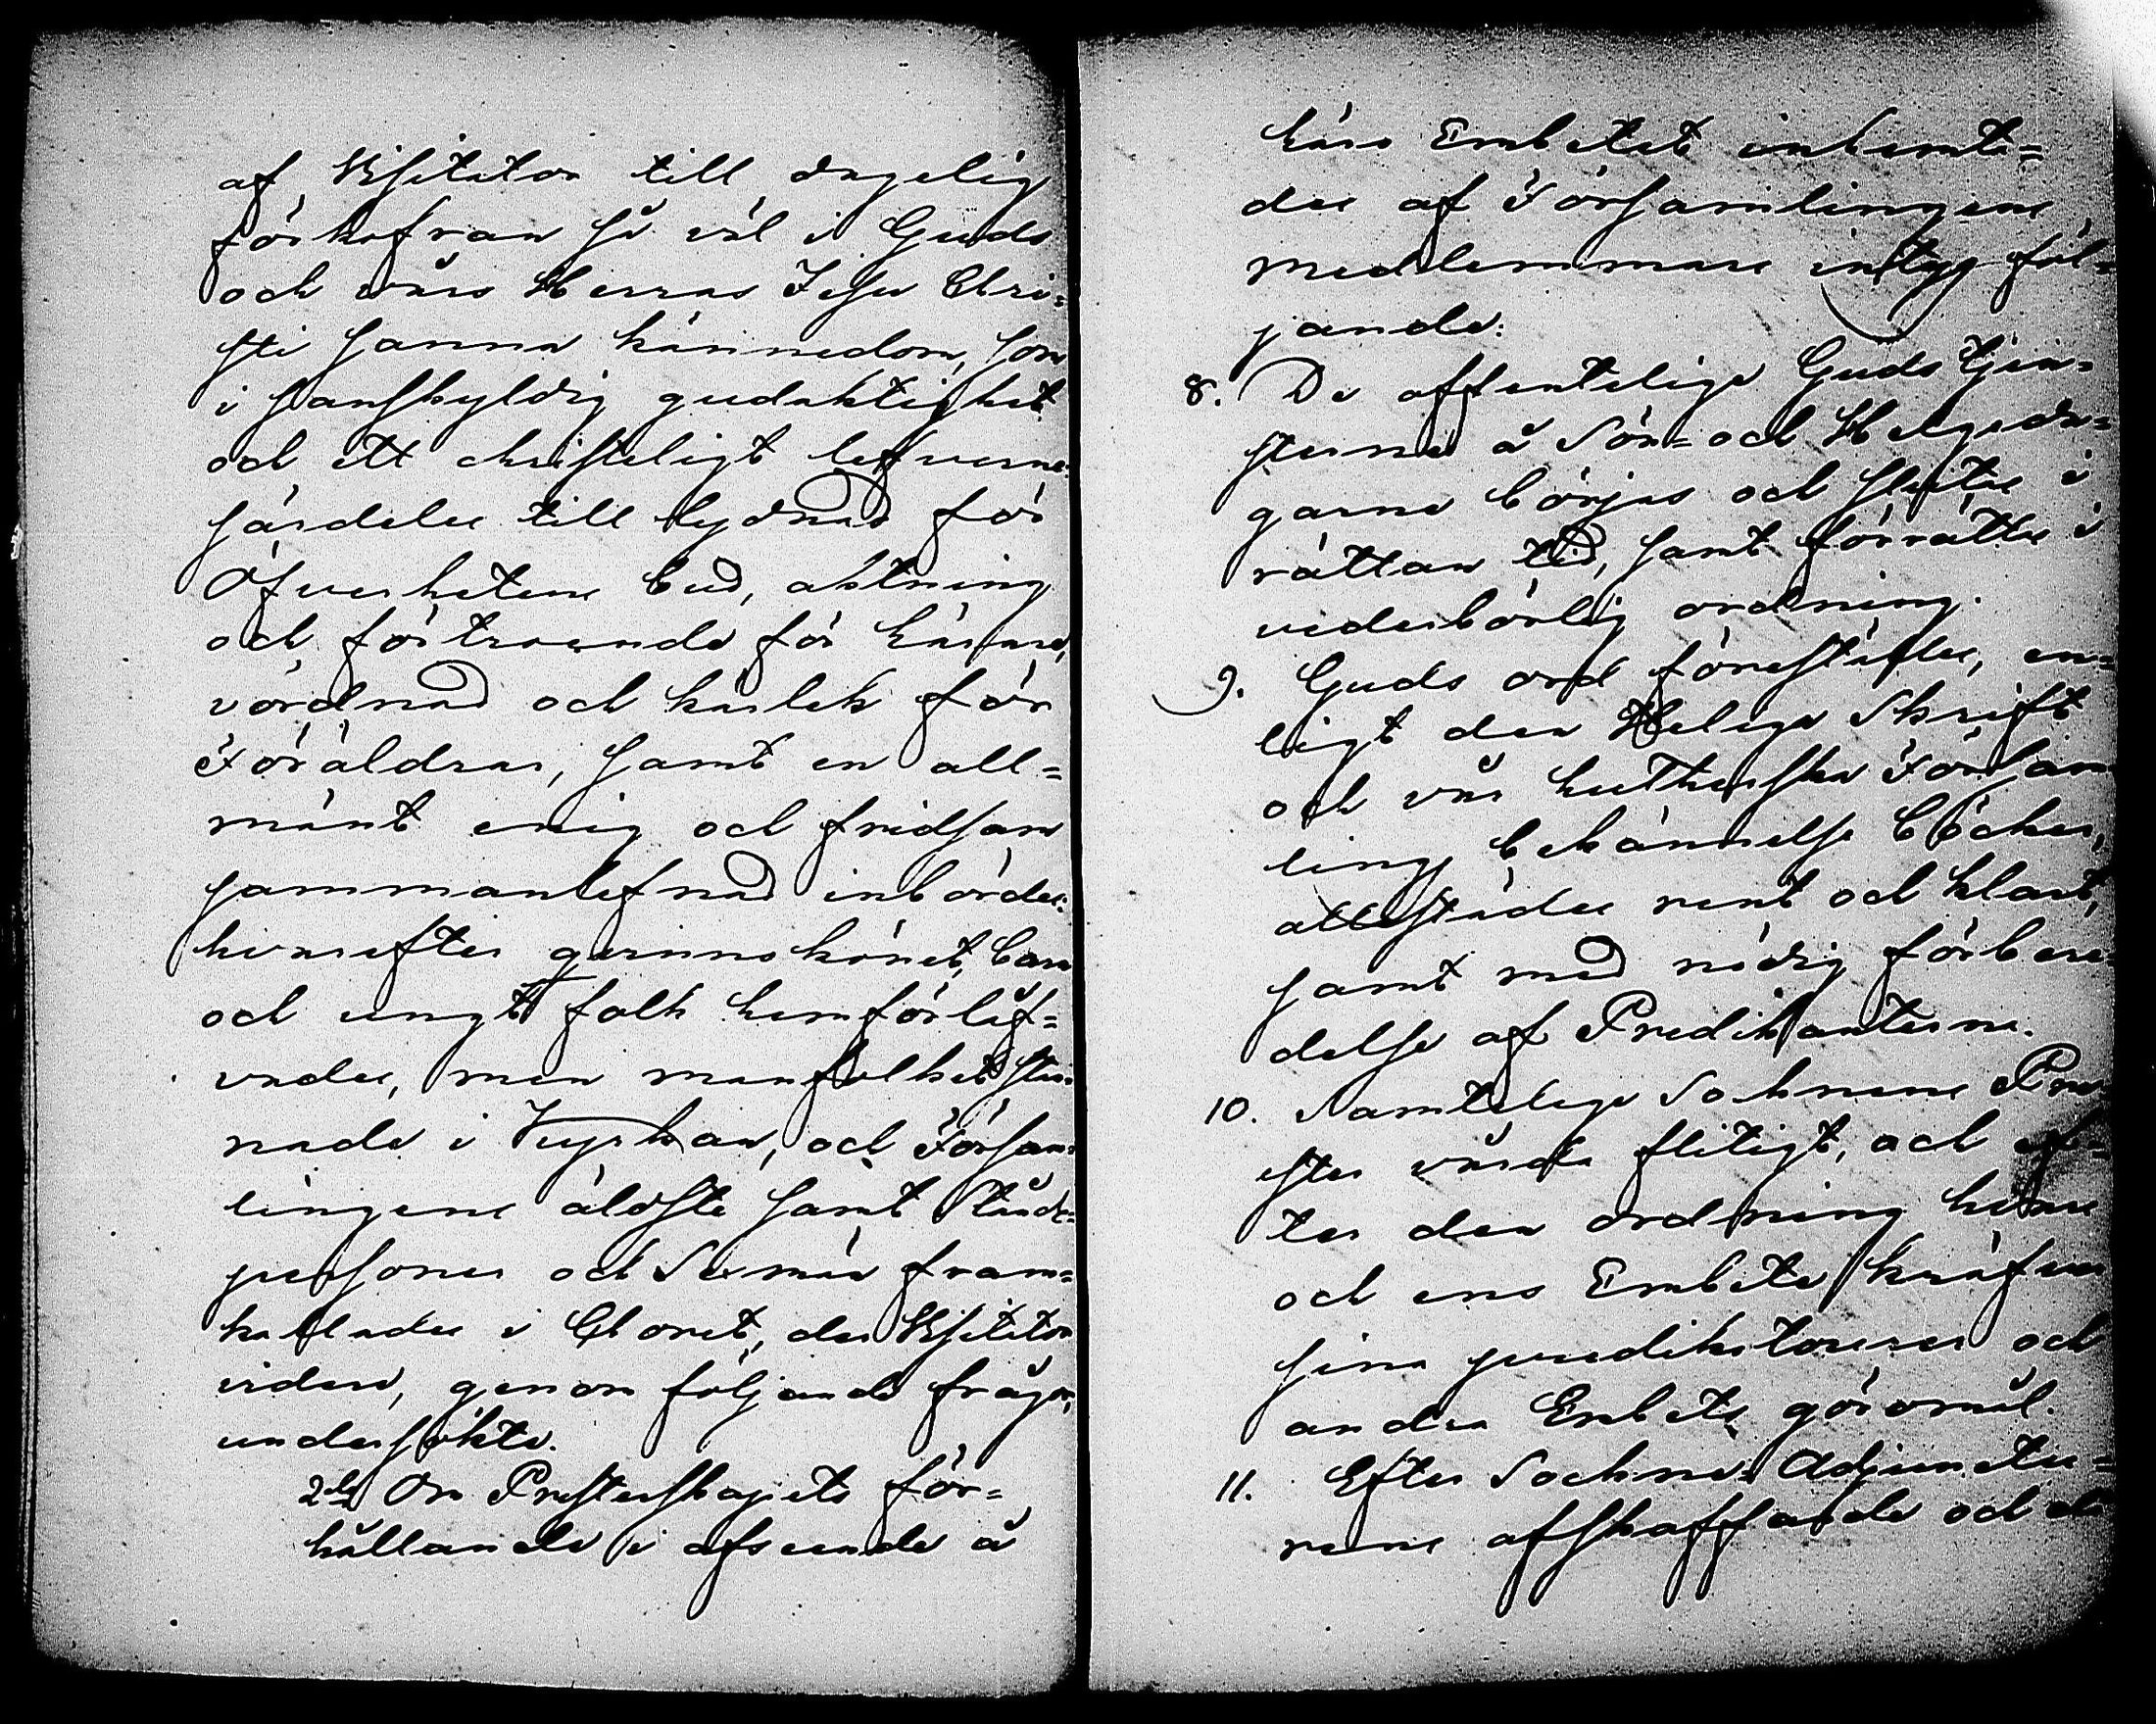 af Visitator till dagelig
förkofran så väl i Guds
och vårs Herras Jesu Chri=
sti sanna kännedom, som
i sanskyldig gudaktighet
och ett christeligt lefverne:
särdeles till lydnad för
Öfverhetens bud, aktning
och förtroende för Lärare,
vördnad och kärlek för
Föräldrar, samt en all=
mänt enig och fridsam
sammanlefnad inbördes:
hvarefter qvinnokönet, barn
och ungt folk hemförlof=
vades, men manfolket stan=
nade i Kyrkan, och Församl=
lingens äldste samt Stånds=
personer och Sexmän fram=
kallades i Choret, der Visitator
vidare, genom följande frågor,
undersökte.
2do Om Presterskapets för=
hållande i afseende å
Läro Embetet inhemta=
des af Församlingens
medlemmars intyg föl=
jande:
8. De offentelige Guds tjen=
sterna å Sön= och Helgeda=
garne börjas och slutas i
rättan tid, samt förrättas i
vederbörlig ordning.
9. Guds ord föreställes, en=
ligt den Heliga Skrift
och vår Lutherska Försam
lings bekännelse böcker,
allestädes rent och klart,
samt med nödig förbere=
delse af Predikanterne.
10. Samtelige Socknens Pre
ster vårda flitigt, och ef=
ter den ordning hvars
och ens Embete kräfver
sina predikstorerer och
andra Embets göromål.
11. Efter Sockne Adjuncter=
nes afskaffande och de